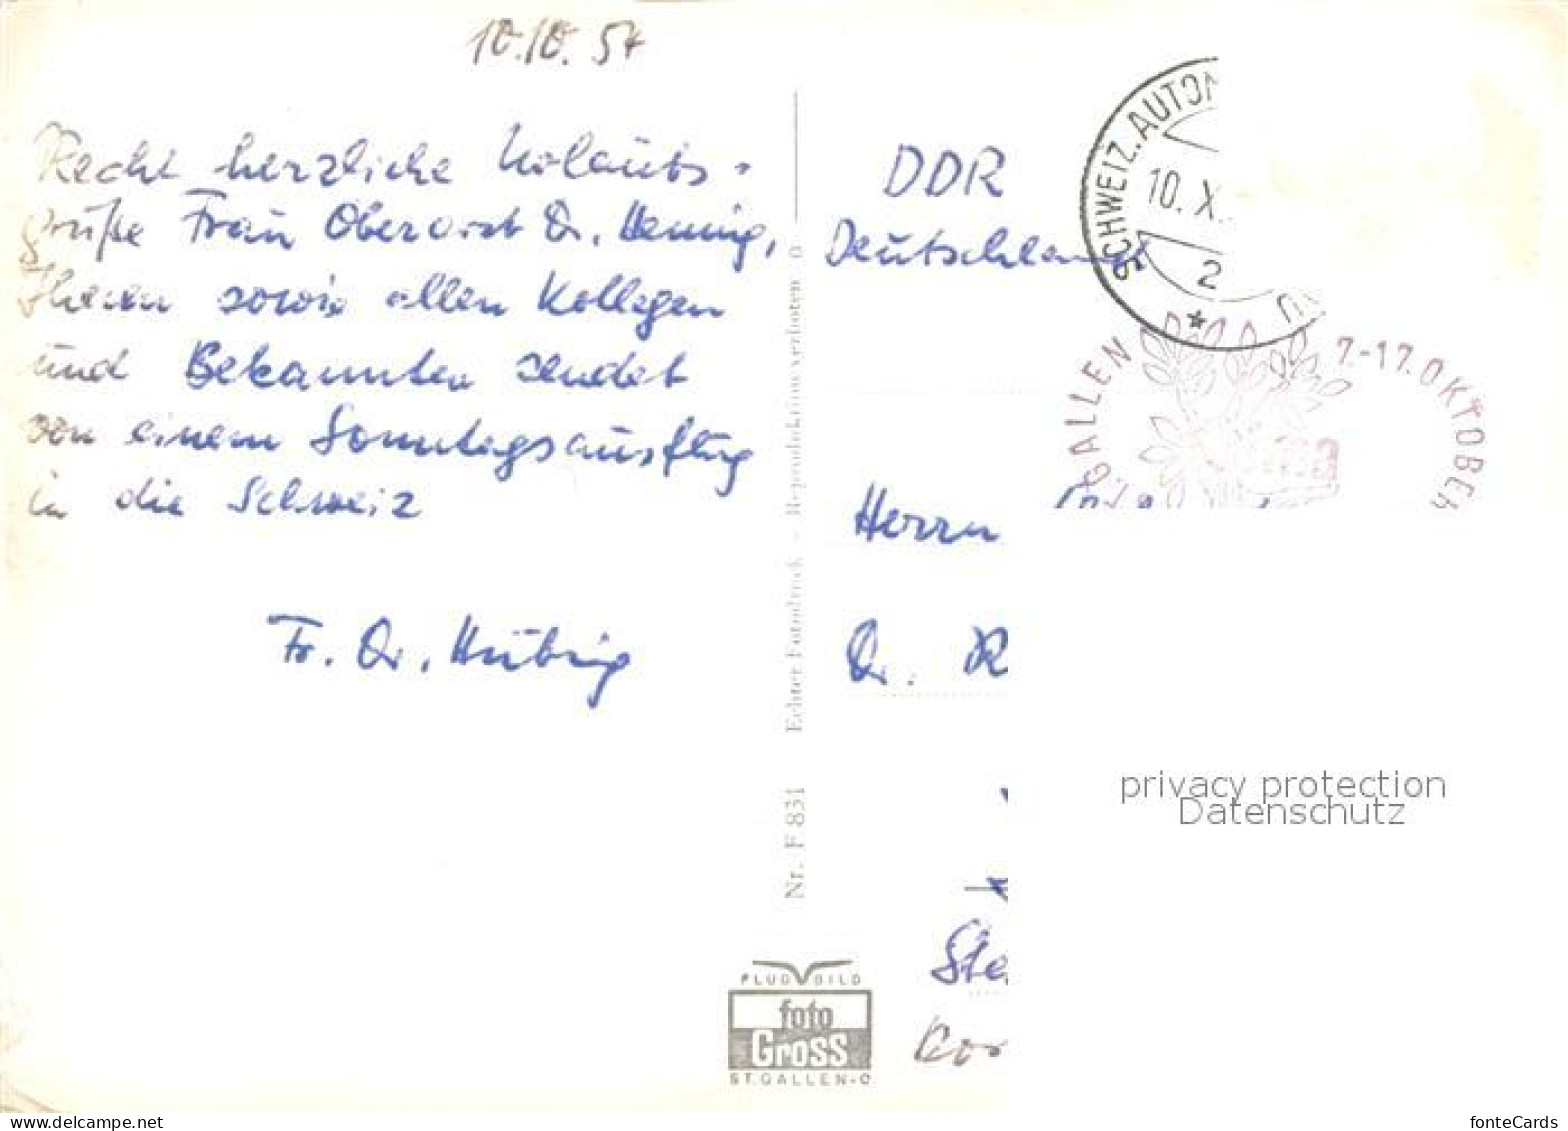 10.10.54
Recht herzliche Urlaubs-
grüße Frau Oberarzt Dr. Hennig,
Ihnen sowie allen Kollegen
und Bekannten sendet
von einem Sonntagsausflug
in die Schweiz
Fr. Dr. Hübrig
Nr. F 831 Echter Fotodruck - Reproduktion verboten 0
FLUGBILD
foto
Gross
ST.GALLEN-O
DDR
Deutschland
SCHWEIZ. AUTOM
10. X.
2
GALLEN 7.-17. OKTOBER
Herrn
Dr. R
Ste
Kor
privacy protection
Datenschutz
Delcampe.net
fonteCards